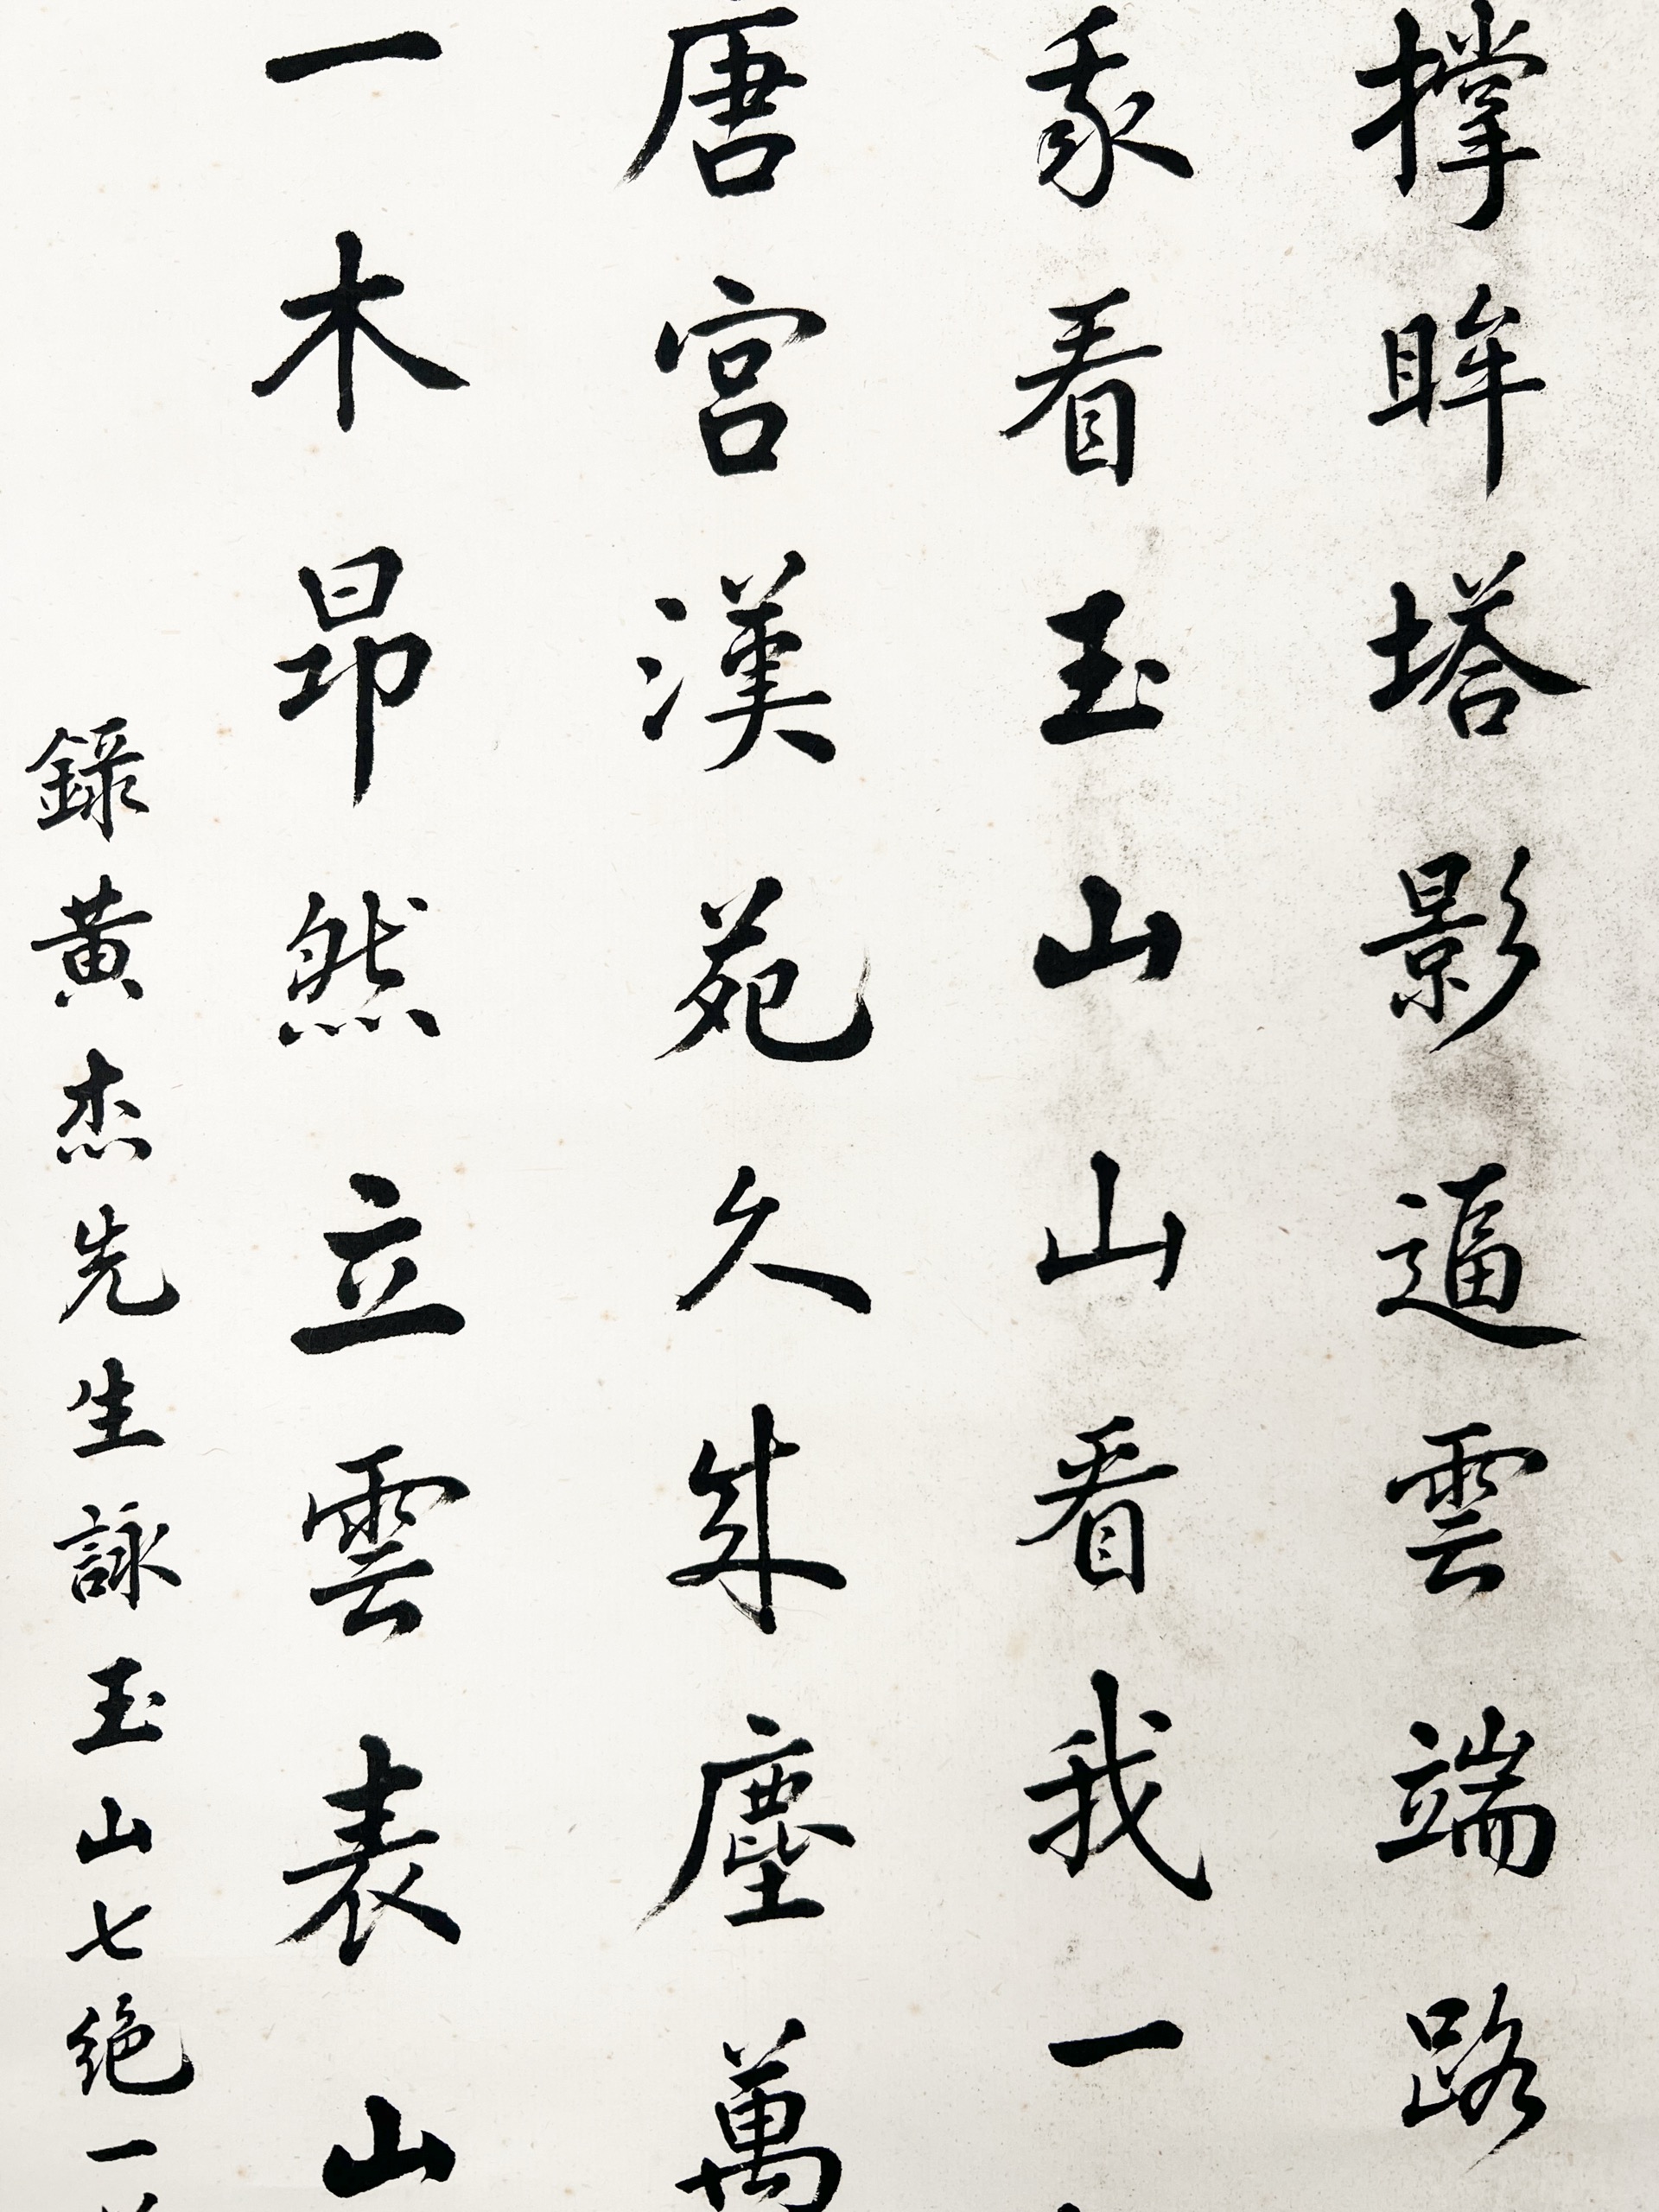 撐眸塔影逼雲端路
我看玉山山看我一
唐宮漢苑久成塵萬
一木昂然立雲表山
錄黃杰先生詠玉山七絕一